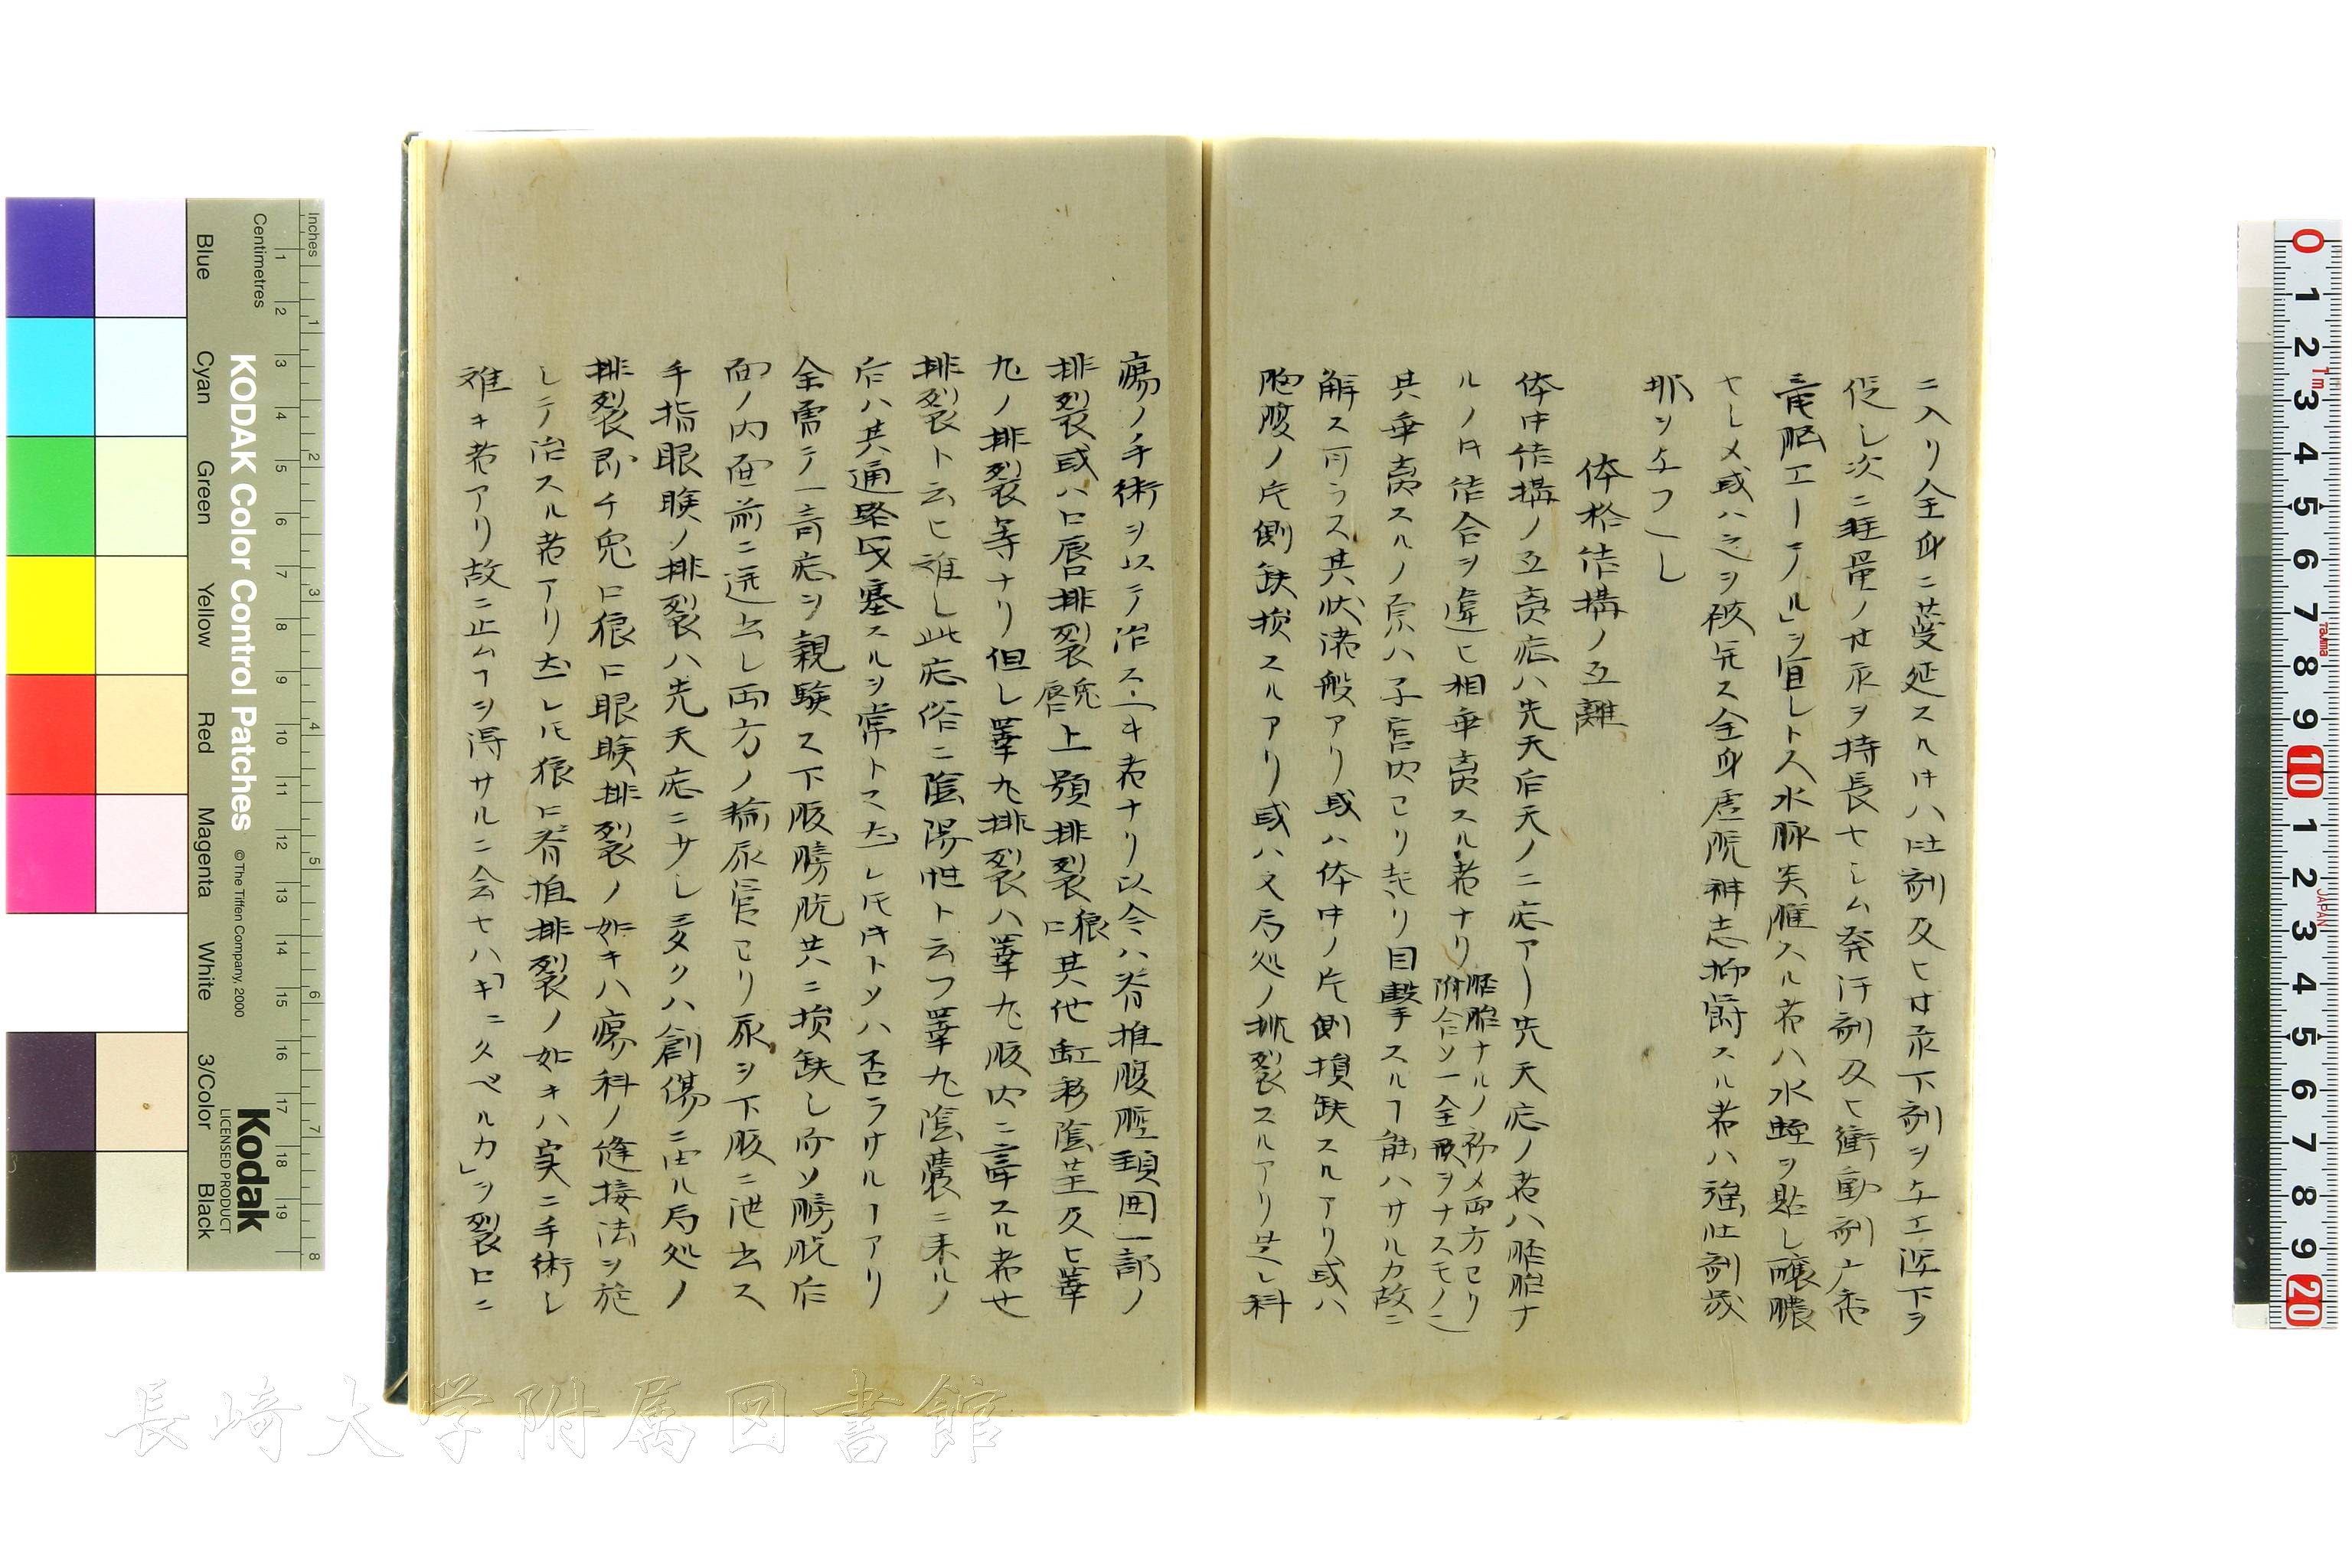 ニ入リ全身ニ蔓延スル时ハ吐剤及ヒ甘汞下剤ヲ与エ逐下ヲ
促し次ニ軽量ノ甘汞ヲ持長セシム発汗剤及ヒ衝動剤
竜脳エーテル」ヲ宜しトス水脉焮腫スル者ハ水蛭ヲ貼し醸膿
セしメ或ハ之ヲ 全身虚脱神志抑欝スル者ハ強壮剤或
那ヲ与フし
体格结構ノ互離
体中结構ノ互 症ハ先天后天ノ二症アー先天症ノ者ハ胚胎ナ
ルノ时结合ヲ違ヒ相乖 スル者ナリ
胚胎ナルノ初メ両方ヨリ
附合ソ一全 ヲナスモノ
其乖 スルノ原ハ子宮内ヨリ 目撃スルヿ能ハサルカ故ニ
解ス可ラス其状諸般アリ或ハ体中ノ片側損缺スルアリ或ハ
胸腹ノ片側缺損スルアリ或ハ又局処ノ排裂スルアリ是し科
瘍ノ手術ヲ以テ治ス キ者ナリ以今ハ脊椎腹腔頚囲一部ノ
排裂或ハ口唇排裂
兎唇
上顎排裂
狼口
其他 陰茎及ヒ睾
丸ノ排裂等ナリ但し睾丸排裂ハ睾丸腹内ニ スル者セ
排裂ト云ヒ雖し此症俗ニ陰陽性ト云フ睾丸陰嚢ニ来ルノ
后ハ其通路 塞スルヲ常トス しにトソハ否ラサルヿアリ
全 テ一奇症ヲ親験ス下腹膀胱共ニ損缺し而ソ膀胱后
面ノ内面前ニ 出し両方ノ輸尿管ヨリ尿ヲ下腹ニ泄出ス
手指眼瞼ノ排裂ハ先天症ニサし多クハ創傷ニ由ル局処ノ
排裂即チ兎口狼口眼瞼排裂ノ如キハ瘍科ノ縫接法ヲ施
しテ治スル者アリ 狼口脊椎排裂ノ如キハ実ニ手術し
難キ者アリ故ニ止ムヿヲ得サルニ会セハ「キニクベルカ」ヲ裂口ニ
KODAK Color Control Patches
©The Tiffen Company, 2000
Kodak
LICENSED PRODUCT
Inches
Centimetres
Blue
Cyan
Green
Yellow
Red
Magenta
White
3/Color
Black
1 2 3 4 5 6 7 8 9 10 11 12 13 14 15 16 17 18 19
1 2 3 4 5 6 7 8
0 1 2 3 4 5 6 7 8 9 10 1 2 3 4 5 6 7 8 9 20
Tajima
JAPAN
長崎大学附属図書館